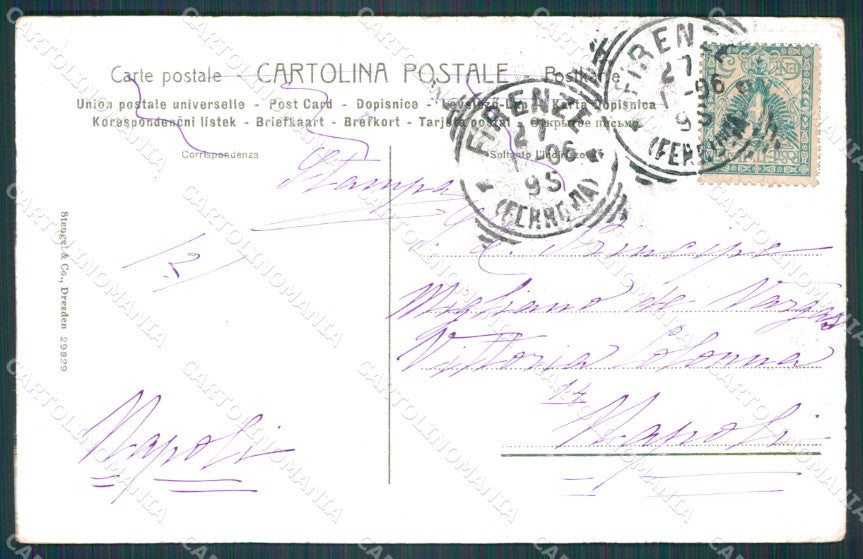 Carte postale - CARTOLINA POSTALE - Postkarte
Union postale universelle - Post Card - Dopisnice - Levelező-Lap - Karta Dopisnica
Korespondenční lístek - Briefkaart - Brefkort - Tarjeta postal - Открытое письмо
Corrispondenza
Soltanto l'indirizzo
FIRENZE
27
-06
9S
(FERROVIA)
FIRENZE
27
-06
9S
(FERROVIA)
Stampa
Principe
Migliano de Vargas
Vittoria Colonna
14
Napoli
Napoli
Stengel & Co., Dresden 29829
CARTOLINOMANIA